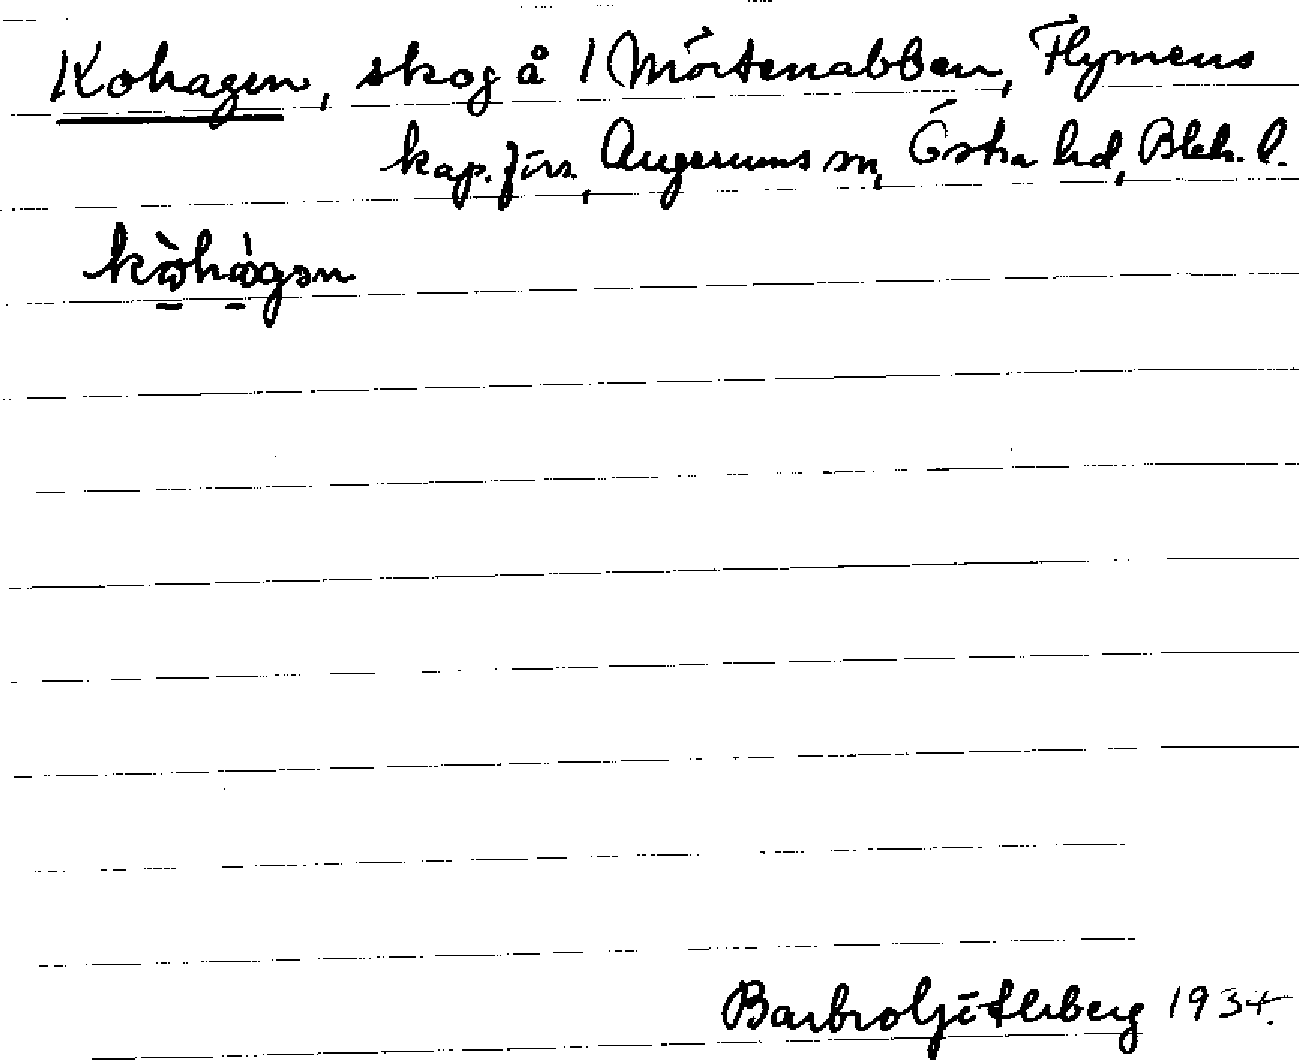 Kohagen, skog å 1 Mörtenabben, Flymens
kap.förs., Augerums sn, Östra hd, Blek. l.
kòhàgən
Barbro Götleberg 1934.